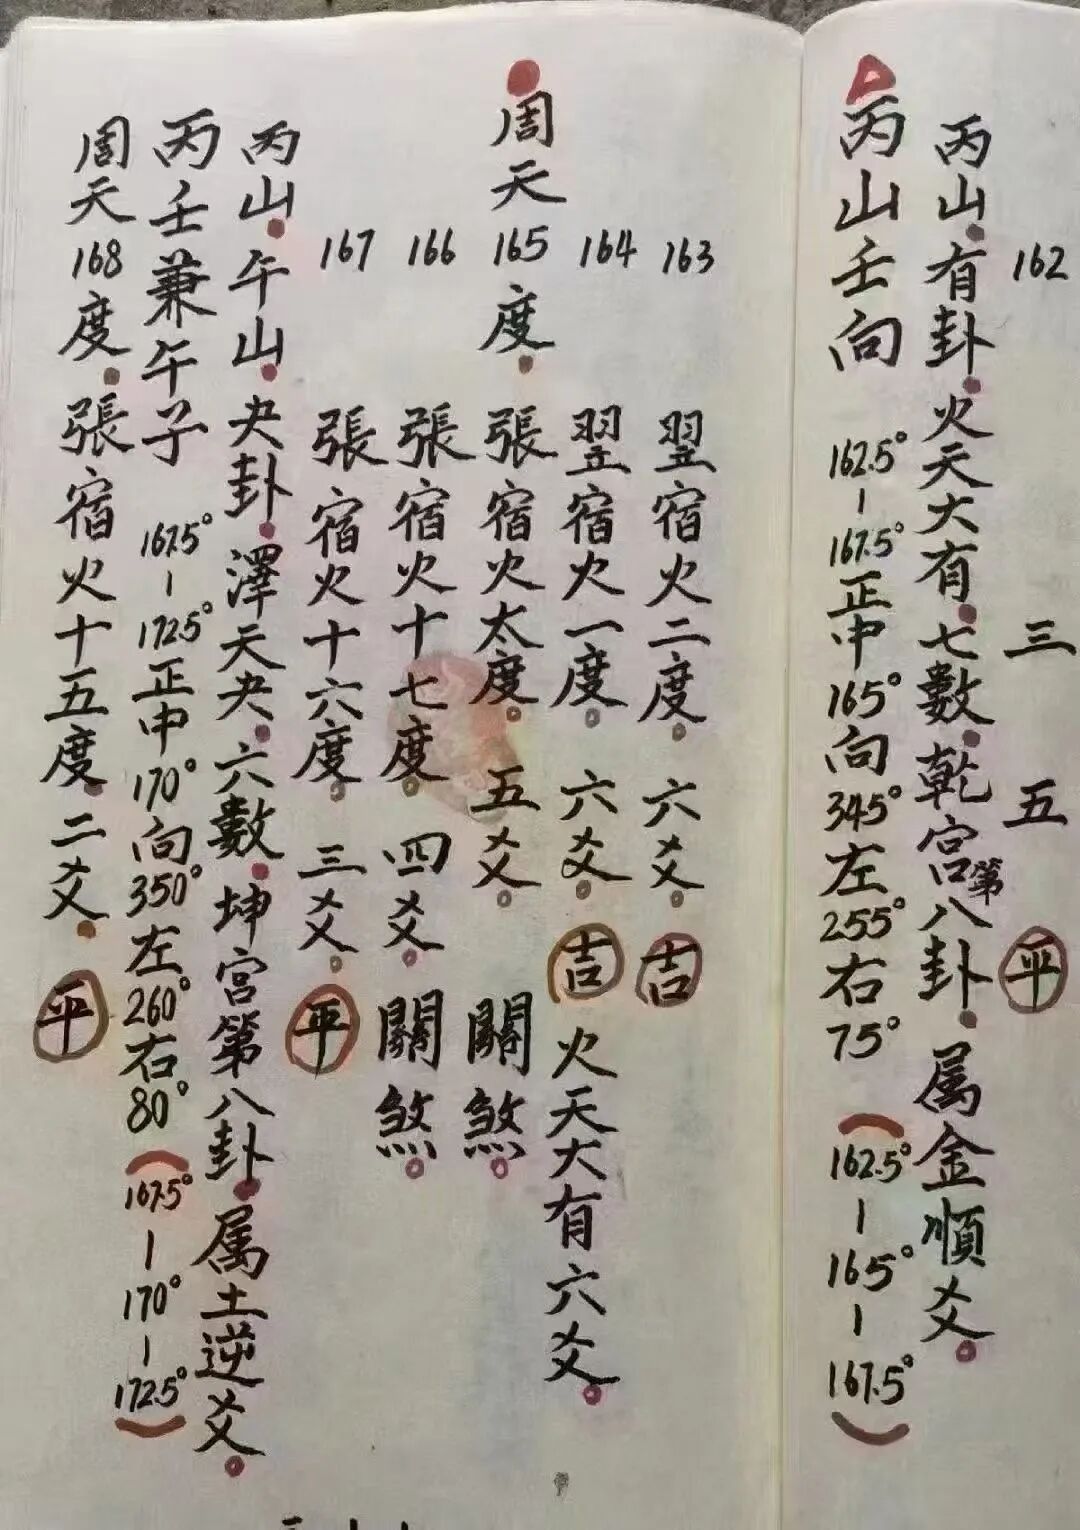 162 三 五 平
丙山.有卦.火天大有.七數.乾宮第八卦.属金順爻。
丙山壬向 162.5°-167.5°正中165°向345°左255°右75° (162.5°-165°-167.5°)
163 翌宿火二度。六爻。吉
164 翌宿火一度。六爻。吉 火天大有六爻。
周天165度.張宿火太度。五爻。關煞。
166 張宿火十七度。四爻。關煞。
167 張宿火十六度。三爻。平
丙山.午山.夬卦.澤天夬.六數.坤宮第八卦.属土逆爻。
丙壬兼午子 167.5°-172.5°正中170°向350°左260°右80° (167.5°-170°-172.5°)
周天168度.張宿火十五度.二爻.平